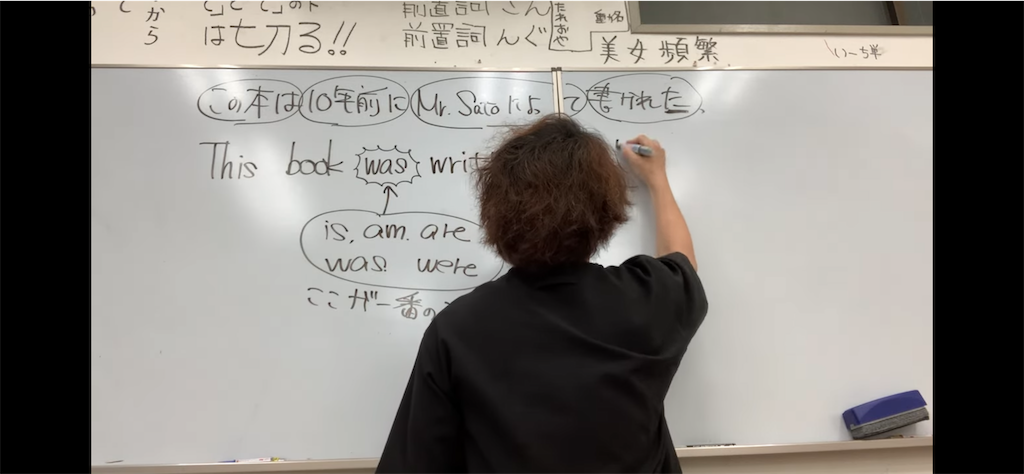 から
は七刀る!!
前置詞 さん
前置詞 んぐ
美女頻繁
いーち単
この本は 10年前に Mr. Sato によって 書かれた。
This book was writt
is, am. are
was. were
ここが一番の